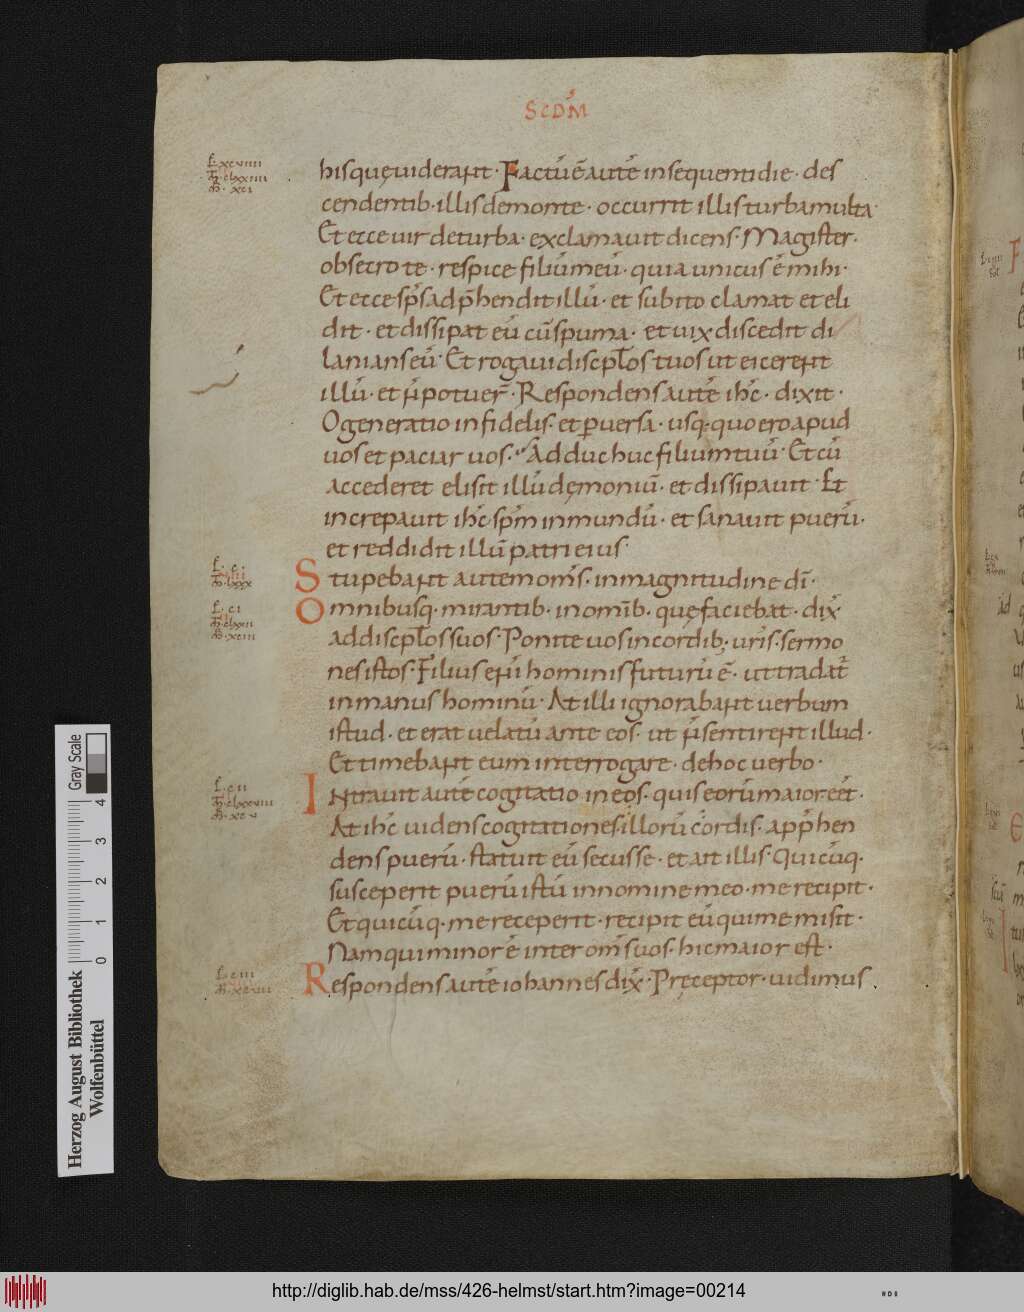 SCDM̄
L. xcviiii
M̄. clxxiiii
M̄. xci
hisquę uiderant · Factū ē autē in sequenti die · des
cendentib · illis demonte · occurrit illis turba multa
Et ecce uir deturba · exclamauit dicens · Magister ·
obsecro te · respice filiū meū · quia unicus ē mihi ·
Et ecce sp̄s adp̄hendit illū · et subito clamat et eli
dit · et dissipat eū cū spuma · et uix discedit di
lanians eū · Et rogaui discip̄los tuos ut eicerent
illū · et n̄ potuer̄ · Respondens autē ih̄c · dixit ·
O generatio infidelis · et ꝑuersa · usq; quo ero apud
uos et paciar uos · Adduc huc filium tuū · Et cū
accederet elisit illū demoniū · et dissipauit · Et
increpauit ih̄c sp̄m inmundū · et sanauit puerū ·
et reddidit illū patri eius ·
Stupebant autem om̄s · in magnitudine dī ·
L. ci
Omnibusq · mirantib · in om̄ib · quę faciebat · dix̄
ad discip̄los suos · Ponite uos in cordib; ur̄is · sermo
nes istos · Filius eni hominis futurū ē · ut tradat̄
in manus hominū · At illi ignorabant uerbum
istud · et erat uelatū ante eos · ut n̄ sentirent illud ·
Et timebant eum interrogare · de hoc uerbo ·
L. cii
M̄. clxxviii
M̄. xcv
Intrauit autē cogitatio in eos · quis eorū maior eēt ·
At ih̄c uidens cogitationes illorū cordis · app̄hen
dens puerū · statuit eū secus se · et ait illis · Quicūq ·
susceperit puerū istū in nomine meo · me recipit ·
Et quicūq · me receperit · recipit eū qui me misit ·
Nam qui minor ē inter om̄s uos · hic maior est ·
L. ciii
Respondens autē iohannes dix̄ · Pręceptor · uidimus
Gray Scale
0 1 2 3 4
Herzog August Bibliothek
Wolfenbüttel
http://diglib.hab.de/mss/426-helmst/start.htm?image=00214